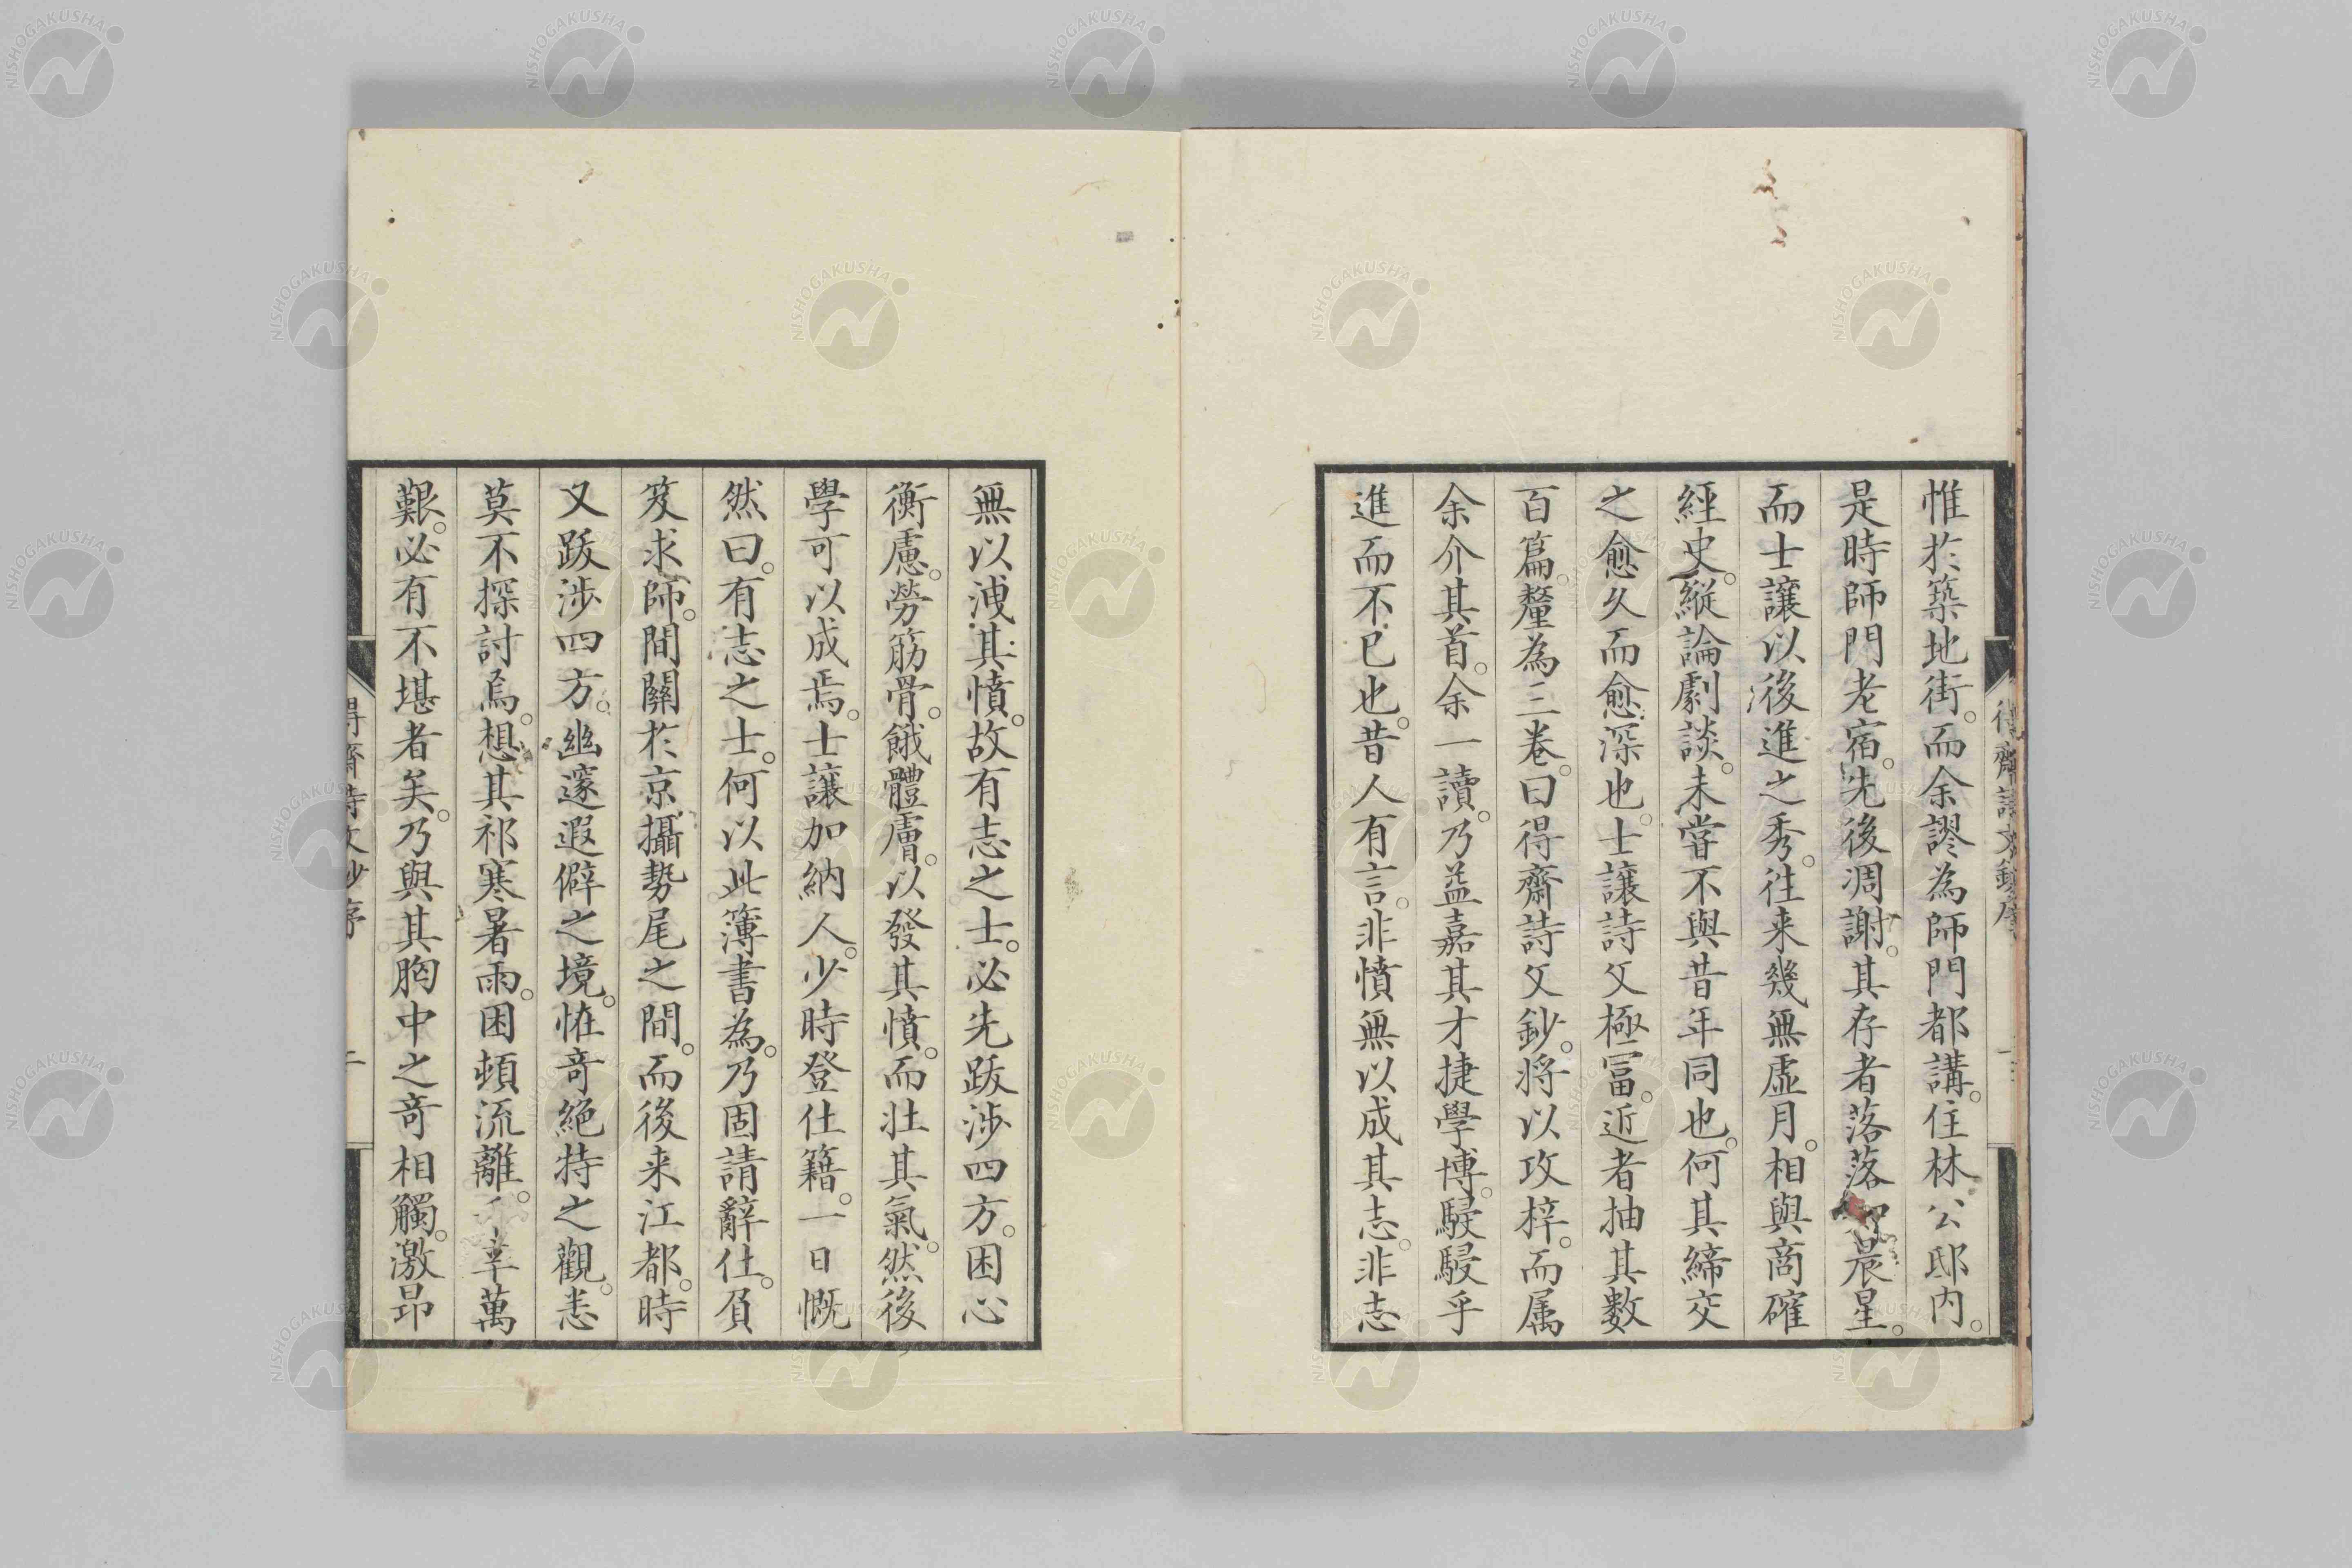 惟於築地街。而余謬為師門都講。住林公邸内。
是時師門老宿。先後凋謝。其存者落落晨星。
而士讓以後進之秀。往来幾無虚月。相與商確
經史。縦論劇談。未嘗不與昔年同也。何其締交
之愈久而愈深也。士讓詩文極冨。近者抽其數
百篇。釐為三巻。曰得齋詩文鈔。将以攻梓。而属
余介其首。余一讀。乃益嘉其才捷學博。駸駸乎
進而不已也。昔人有言。非憤無以成其志。非志
無以洩其憤。故有志之士。必先跋渉四方。困心
衡慮。勞筋骨。餓體膚。以發其憤。而壮其氣。然後
學可以成焉。士讓加納人。少時登仕籍。一日慨
然曰。有志之士。何以此簿書為。乃固請辭仕。負
笈求師。間關於京攝勢尾之間。而後来江都。時
又跋渉四方。幽邃遐僻之境。恠竒絶特之觀。悉
莫不探討焉。想其祁寒暑雨。困頓流離。辛萬
艱。必有不堪者矣。乃與其胸中之竒相觸。激昂
得齋詩文鈔序
NISHOGAKUSHA